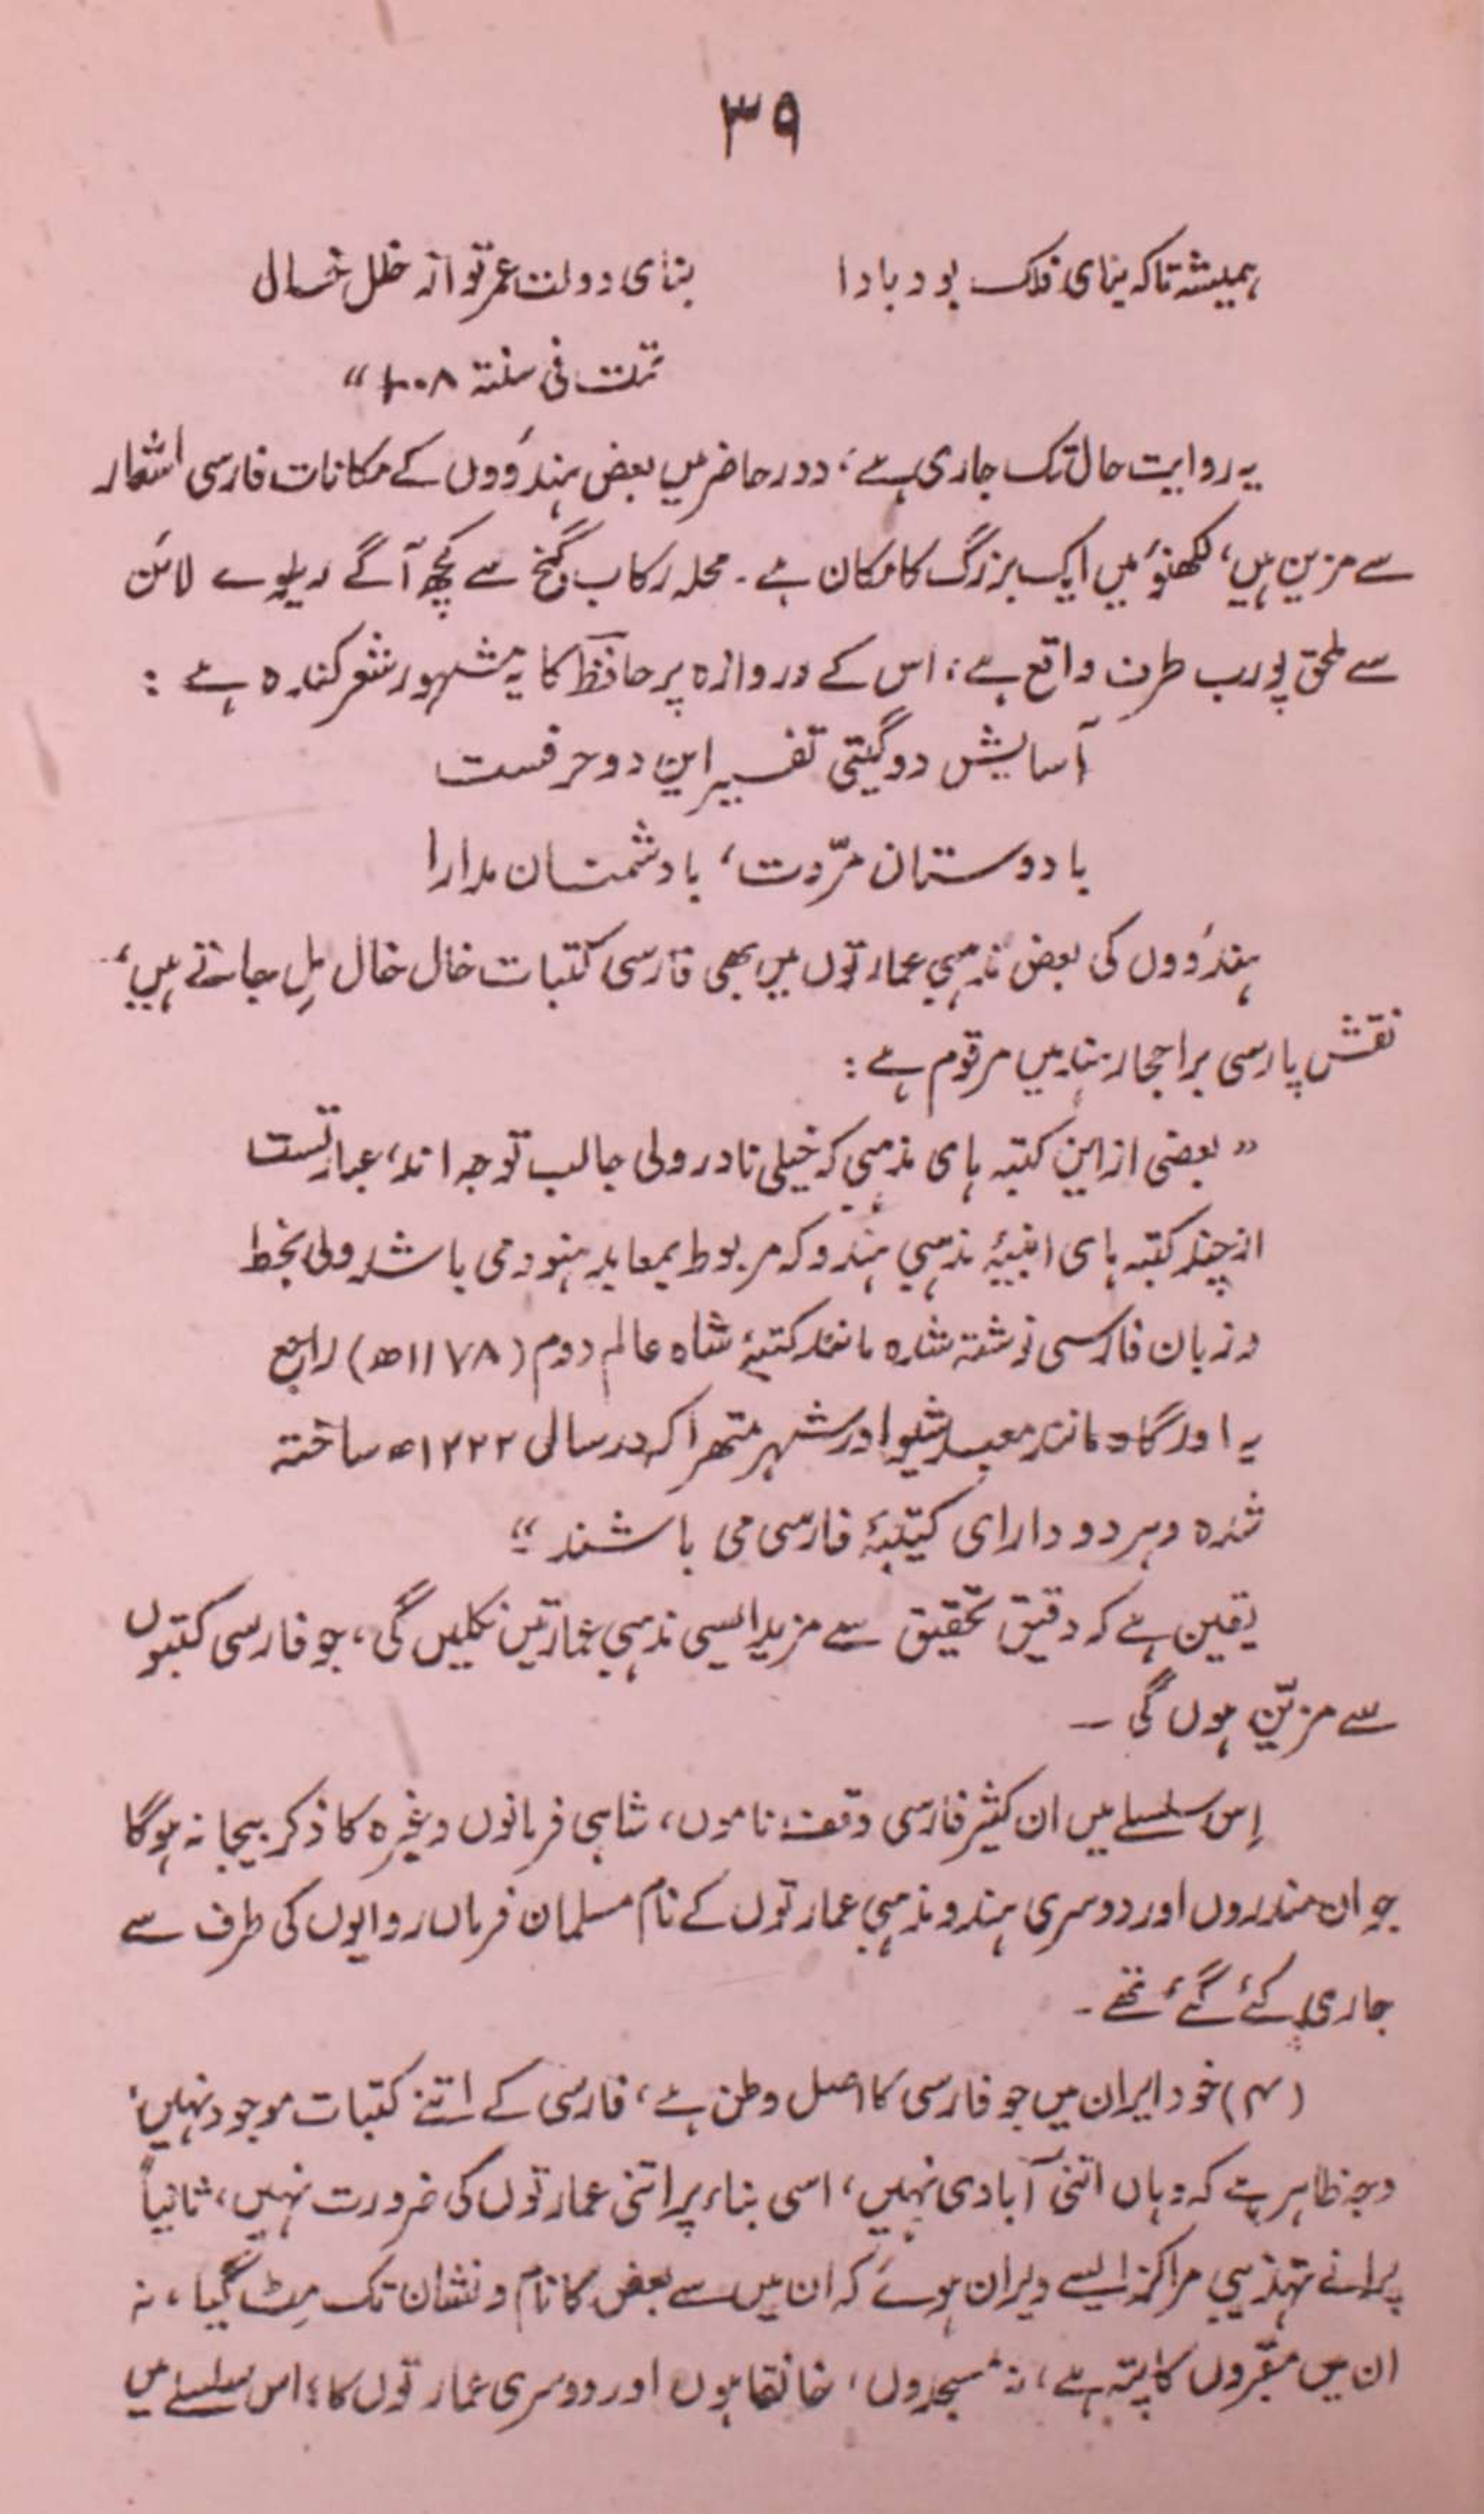 ۳۹
ہمیشہ تا کہ بنای فلک بود بادا بنای دولت عمر تو از خلل خسال
تمت فی سنۃ ۱۰۰۸ “
یہ روایت حال تک جاری ہے، دور حاضر میں بعض ہندوٗوں کے مکانات فارسی اشعار
سے مزین ہیں، لکھنؤ میں ایک بزرگ کا مکان ہے۔ محلہ رکاب گنج سے کچھ آگے ریلوے لائن
سے ملحق پورب طرف واقع ہے، اس کے دروازہ پر حافظؔ کا یہ مشہور شعر کندہ ہے :
آسایش دو گیتی تفسیر این دو حرفست
با دوستان مرّوت، با دشمنان مدارا
ہندوٗوں کی بعض مذہبی عمارتوں میں بھی فارسی کتبات خال خال مل جاتے ہیں،
نقش پارسی بر احجار ہند میں مرقوم ہے :
” بعضی از این کتبہ ہای مذہبی کہ خیلی نادر ولی جالب توجہ اند، عبارتست
از چند کتبہ ہای ابنیۂ مذہبی ہندو کہ مربوط بمعابد ہنود می باشد ولی بخط
و زبان فارسی نوشتہ شدہ مانند کتبۂ شاہ عالم دوم (۱۱۷۸ھ) راجع
بہ اور گاہ مانند معبد شیوا در شہر متھرا کہ در سالی ۱۲۲۲ھ ساختہ
شدہ و ہر دو دارای کتیبۂ فارسی می باشند “
یقین ہے کہ دقیق تحقیق سے مزید ایسی مذہبی عمارتیں نکلیں گی، جو فارسی کتبوں
سے مزیّن ہوں گی ۔
اِس سلسلے میں ان کثیر فارسی وقف ناموں، شاہی فرمانوں وغیرہ کا ذکر بیجا نہ ہوگا
جو ان مندروں اور دوسری ہندو مذہبی عمارتوں کے نام مسلمان فرماں روایوں کی طرف سے
جاری کئے گئے تھے ۔
(۴) خود ایران میں جو فارسی کا اصل وطن ہے، فارسی کے اتنے کتبات موجود نہیں،
وجہ ظاہر ہے کہ وہاں اتنی آبادی نہیں، اسی بناء پر اتنی عمارتوں کی ضرورت نہیں، ثانیاً
پرانے تہذیبی مراکز ایسے ویران ہوئے کہ ان میں سے بعض کا نام و نشان تک مٹ گیا، نہ
ان میں مقبروں کا پتہ ہے، نہ مسجدوں، خانقاہوں اور دوسری عمارتوں کا؛ اس سلسلے میں